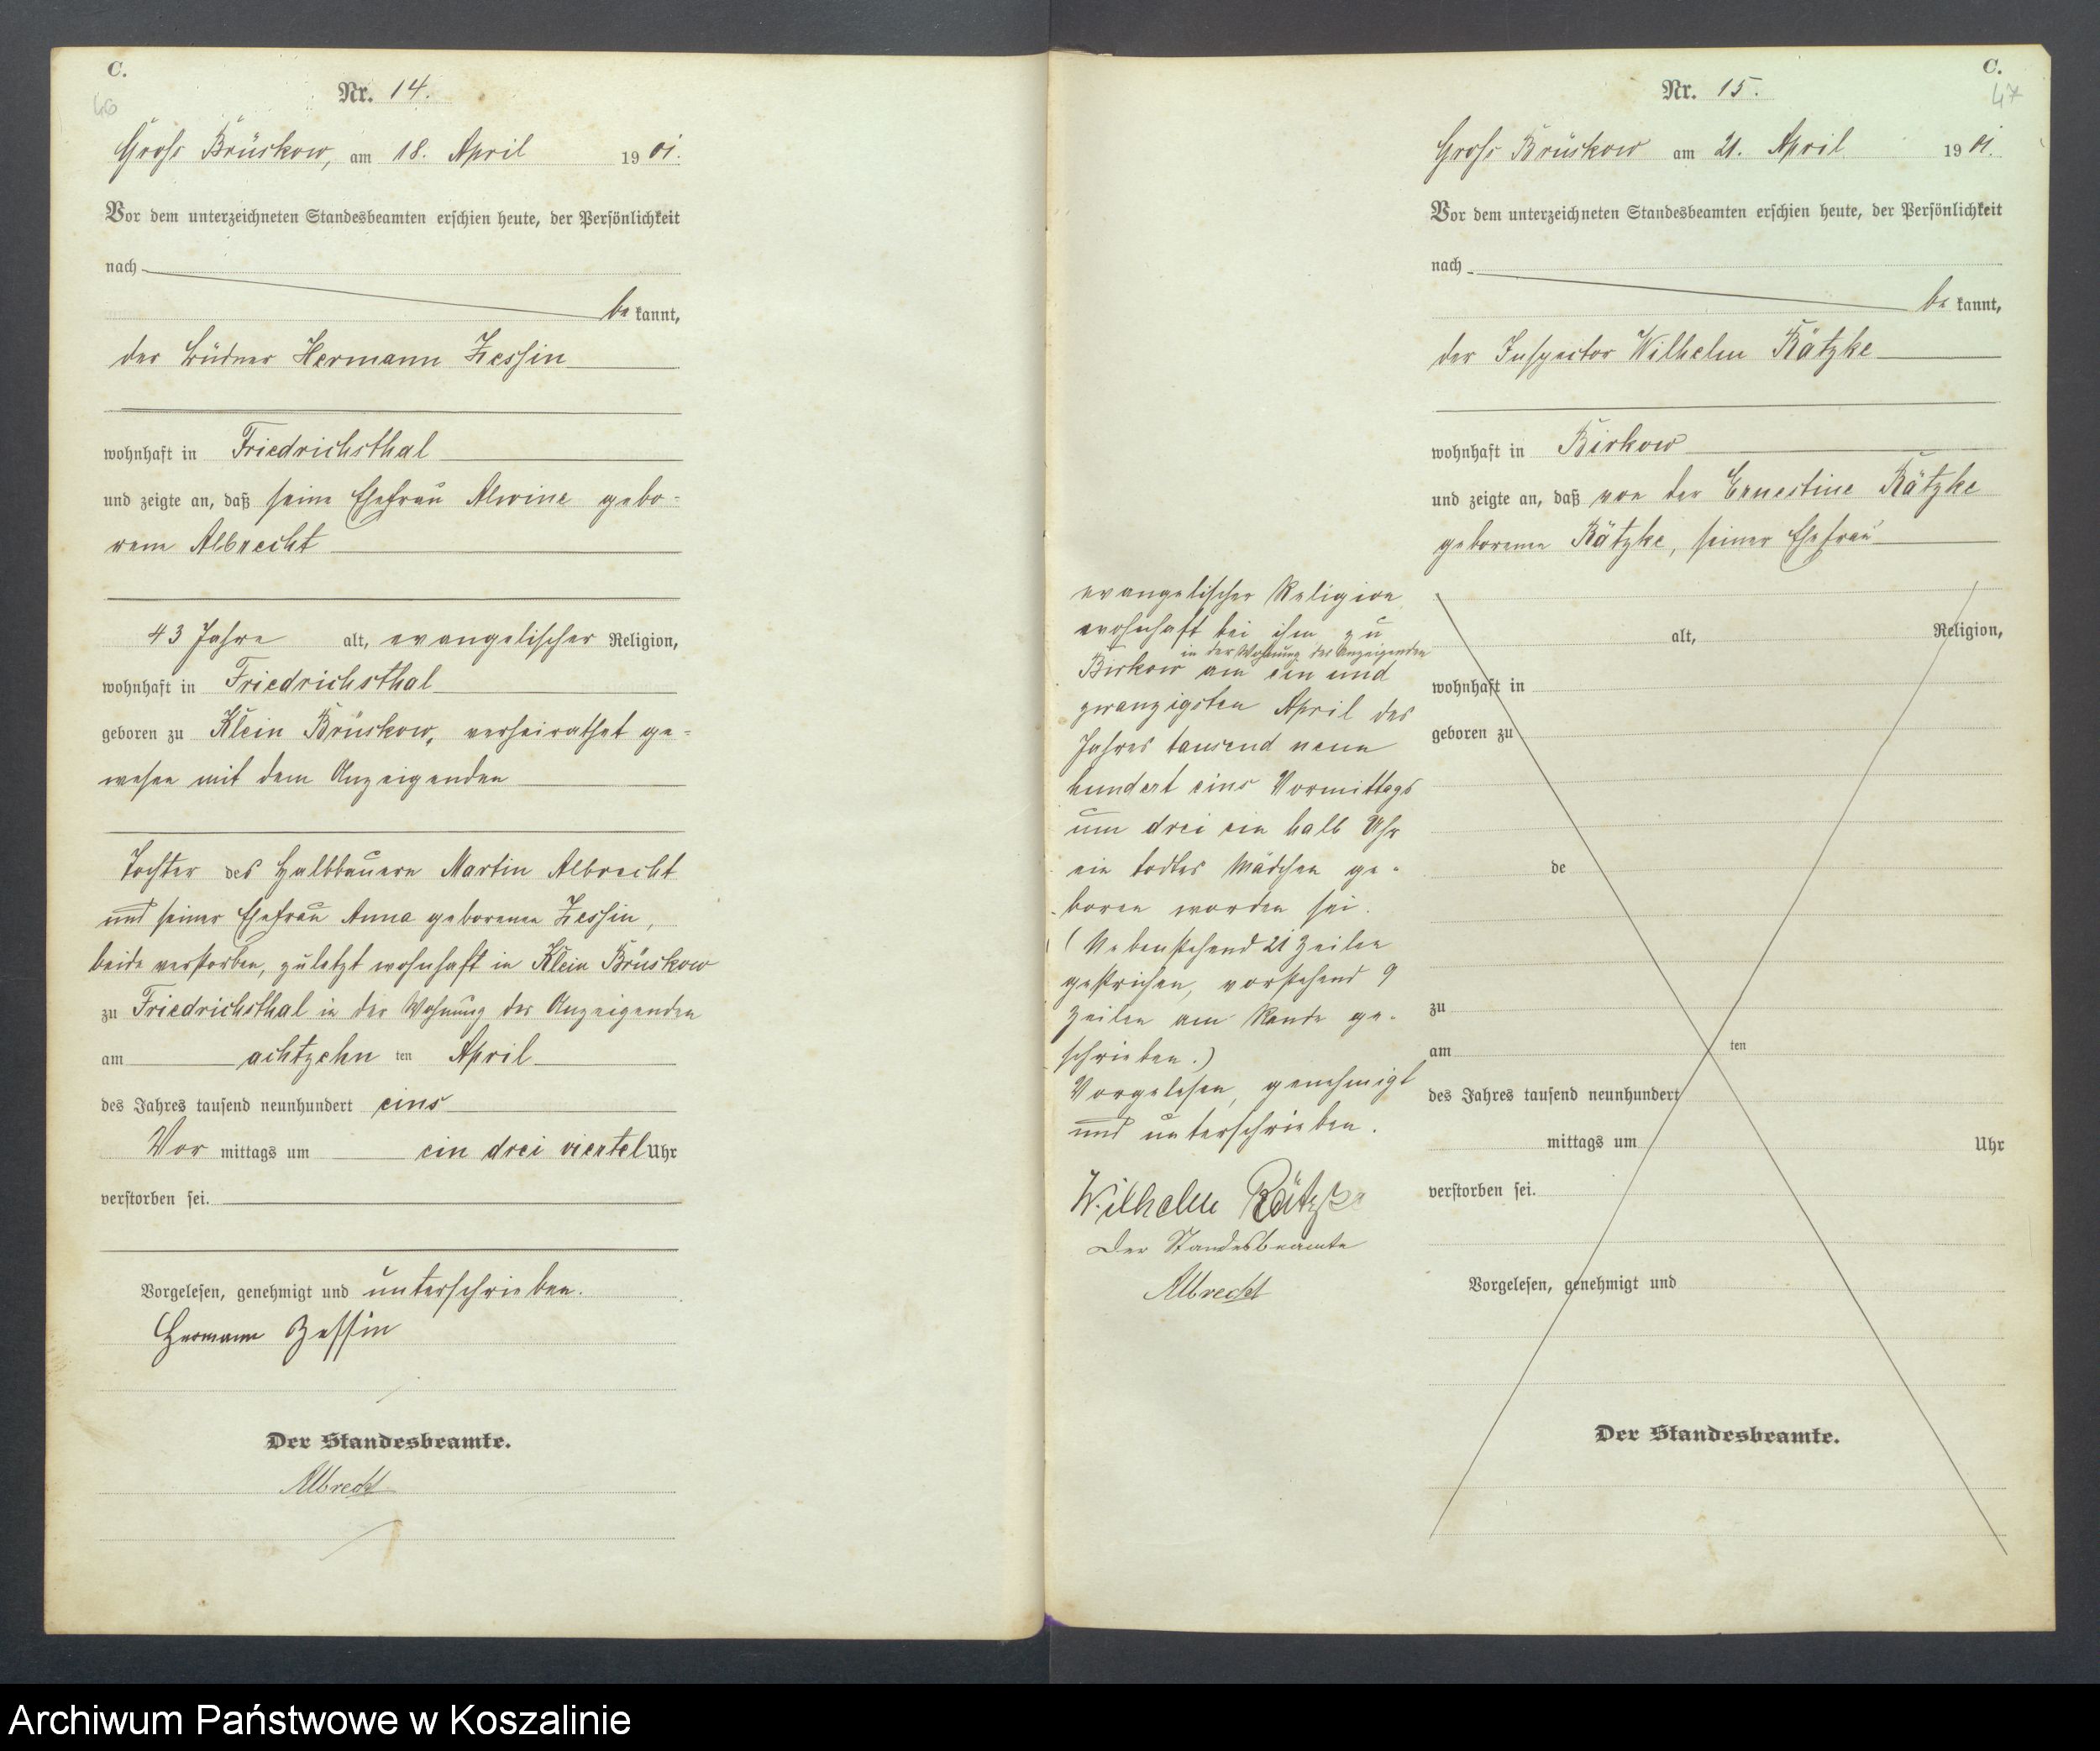 C.
46
Nr. 14.
Gross Brüskow, am 18. April 1901.
Vor dem unterzeichneten Standesbeamten erschien heute, der Persönlichkeit
nach
bekannt,
der Büdner Hermann Zessin
wohnhaft in Friedrichsthal
und zeigte an, daß seine Ehefrau Alwine gebo-
rene Albrecht
43 Jahre alt, evangelischer Religion,
wohnhaft in Friedrichsthal
geboren zu Klein Brüskow, verheirathet ge-
wesen mit dem Anzeigenden
Tochter des Halbbauern Martin Albrecht
und seiner Ehefrau Anna geborenen Zessin,
beide verstorben, zuletzt wohnhaft in Klein Brüskow
zu Friedrichsthal in der Wohnung des Anzeigenden
am achtzehn ten April
des Jahres tausend neunhundert eins
Vor mittags um ein drei viertel Uhr
verstorben sei.
Vorgelesen, genehmigt und unterschrieben.
Hermann Zessin
Der Standesbeamte.
Albrecht
C.
47
Nr. 15.
Gross Brüskow am 21. April 1901.
Vor dem unterzeichneten Standesbeamten erschien heute, der Persönlichkeit
nach
bekannt,
der Inspector Wilhelm Rätzke
wohnhaft in Birkow
und zeigte an, daß von der Ernestine Rätzke
geborene Rätzke, seiner Ehefrau
evangelischer Religion
wohnhaft bei ihm zu
in der Wohnung des Anzeigenden
Birkow am ein und
zwanzigsten April des
Jahres tausend neun
hundert eins Vormittags
um drei ein halb Uhr
ein todtes Mädchen ge-
boren worden sei.
(Nebenstehend 21 Zeilen
gestrichen, vorstehend 9
Zeilen am Rande ge-
schrieben.)
Vorgelesen, genehmigt
und unterschrieben.
Wilhelm Rätzke
Der Standesbeamte
Albrecht
alt, Religion,
wohnhaft in
geboren zu
de
zu
am ten
des Jahres tausend neunhundert
mittags um Uhr
verstorben sei.
Vorgelesen, genehmigt und
Der Standesbeamte.
Archiwum Państwowe w Koszalinie